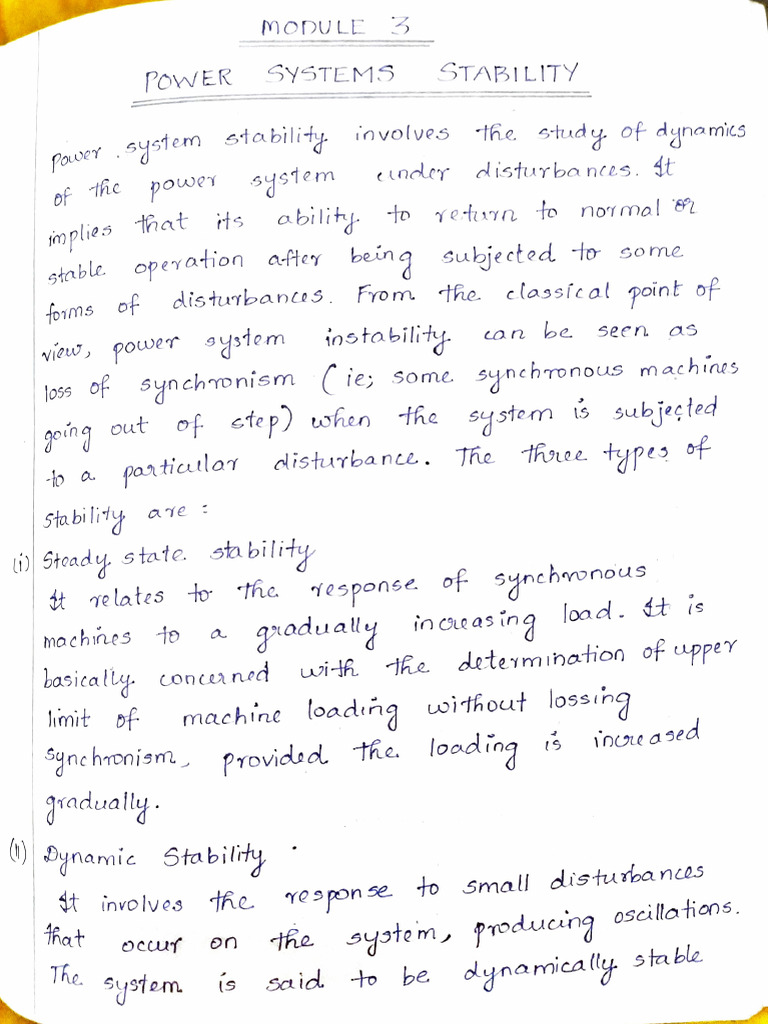 MODULE 3
POWER SYSTEMS STABILITY
Power system stability involves the study of dynamics
of the power system under disturbances. It
implies that its ability to return to normal or
stable operation after being subjected to some
forms of disturbances. From the classical point of
view, power system instability can be seen as
loss of synchronism (ie; some synchronous machines
going out of step) when the system is subjected
to a particular disturbance. The three types of
stability are :
(i) Steady state stability
It relates to the response of synchronous
machines to a gradually increasing load. It is
basically concerned with the determination of upper
limit of machine loading without lossing
synchronism, provided the loading is increased
gradually.
(ii) Dynamic Stability
It involves the response to small disturbances
that occur on the system, producing oscillations.
The system is said to be dynamically stable